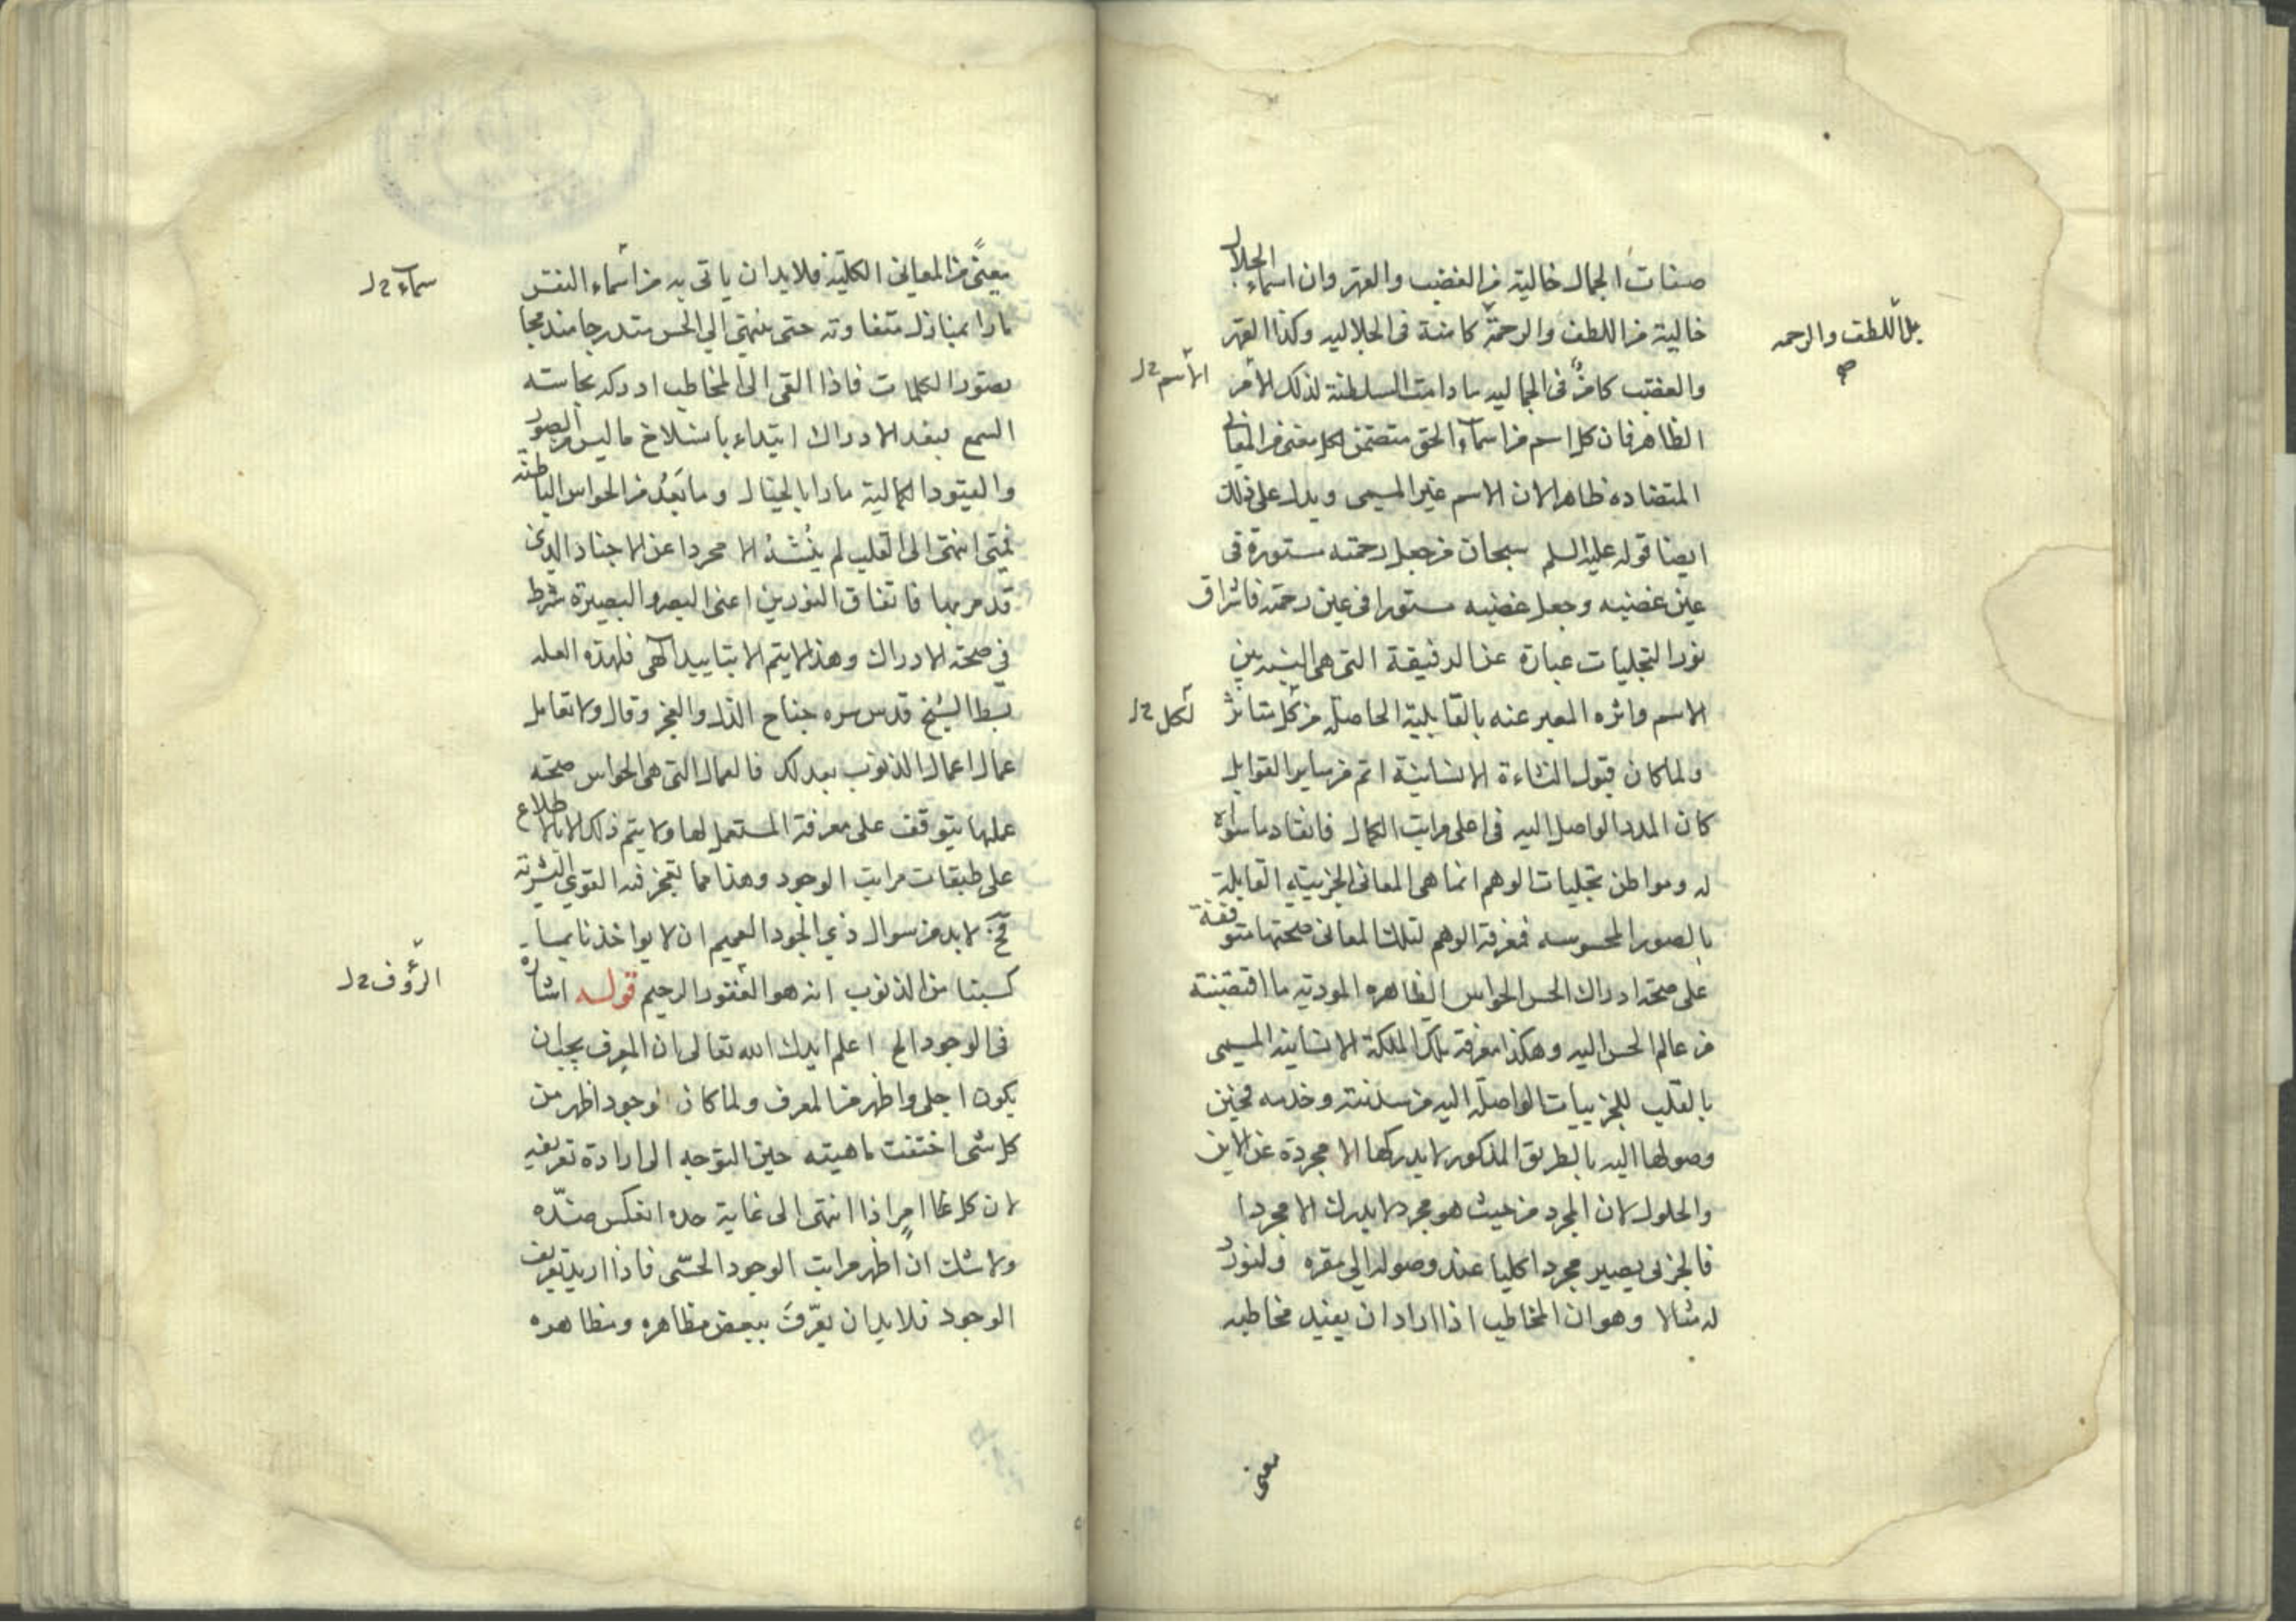 صفات الجمال خالية من الغضب والقهر وان اسماء الجلال
خالية من اللطف والرحمة كامنة فى الجلاليه وكذا القهر
بل اللطف والرحمه
صح
والغضب كامن فى الجماليه مادامت السلطنة لذلك الامر
الاسم
الظاهر فان كل اسم من اسماء الحق متضمن لكل معنى من المعانى
المتضاده ظاهرا لان الاسم عين المسمى ويدل على ذلك
ايضا قوله عليه السلم سبحان من جعل رحمته مستورة فى
عين غضبه وجعل غضبه مستورا فى عين رحمته فاشراق
نور التجليات عبارة عن الدقيقة التى هى النسبة بين
الاسم واثره المعبر عنه بالقابلية الحاصلة من كل متاثر
لكل
ولما كان قبول النشاءة الانسانية اتم من ساير القوابل
كان المدد الواصل اليه فى اعلى مراتب الكمال فانقاد ماسواه
له ومواطن تجليات الوهم انما هى المعانى الجزييه القابلة
بالصور المحسوسه فمعرفة الوهم لتلك المعانى صحتها متوقفة
على صحة ادراك الحس الحواس الظاهره المودية ما اقتضته
من عالم الحس اليه وهكذا معرفة تلك الملكة الانسانية المسمى
بالقلب للجزييات الواصلة اليه من سدنته وخدمه فحين
وصولها اليه بالطريق المذكور لا يدركها الا مجردة عن الاين
والحلول لان المجرد من حيث هو مجرد لا يدرك الا مجردا
فالجزئى يصير مجردا كليا عند وصوله الى مقره ولنورد
له مثالا وهو ان المخاطب اذا اراد ان يفيد مخاطبه
معنى
معنًى من المعانى الكلية فلابد ان ياتى به من اسماء النفس
سماء
مارا بمنازل متفاوته حتى ينتهى الى الحس متدرجا منه
بصور الكلمات فاذا القى الى المخاطب ادركه بحاسته
السمع فبعد الادراك ابتداء بانسلاخ ما ليس من الصور
والقيود الكمالية مارا بالخيال وما بَعُد من الحواس الباطنة
فمتى انتهى الى القلب لم الا مجردا عن الاجناد الذى
قد مر بها فاتفاق النورين اعنى البصر والبصيرة شرط
فى صحة الادراك وهذا لا يتم الا بتاييد الهى فلهذه العله
بسط الشيخ قدس سره جناح الذل والعجز وقال ولا تعامل
عمال اعمال الذنوب بعدلك فالعمال التى هى الحواس صحة
عملها يتوقف على معرفة المستعمل لها ولا يتم ذلك الا بالاطلاع
على طبقات مراتب الوجود وهذا مما تعجز فيه القوى البشرية
فح لابد من سوال ذى الجود العميم ان لا يواخذنا بما
كسبنا من الذنوب انه هو الغفور الرحيم قوله اشارة
الرؤف
فى الوجود الخ اعلم ايدك الله تعالى ان المعرف يجب ان
يكون اجلى واظهر من المعرف ولما كان الوجود اظهر من
كل شى اختفت ماهيته حين التوجه الى ارادة تعريفه
لان كل امرٍ اذا انتهى الى غاية حده انعكس ضدّه
ولا شك ان اظهر مراتب الوجود الحسّى فاذا اريد تعريف
الوجود فلابد ان يعرّف ببعض مظاهره ومظاهره